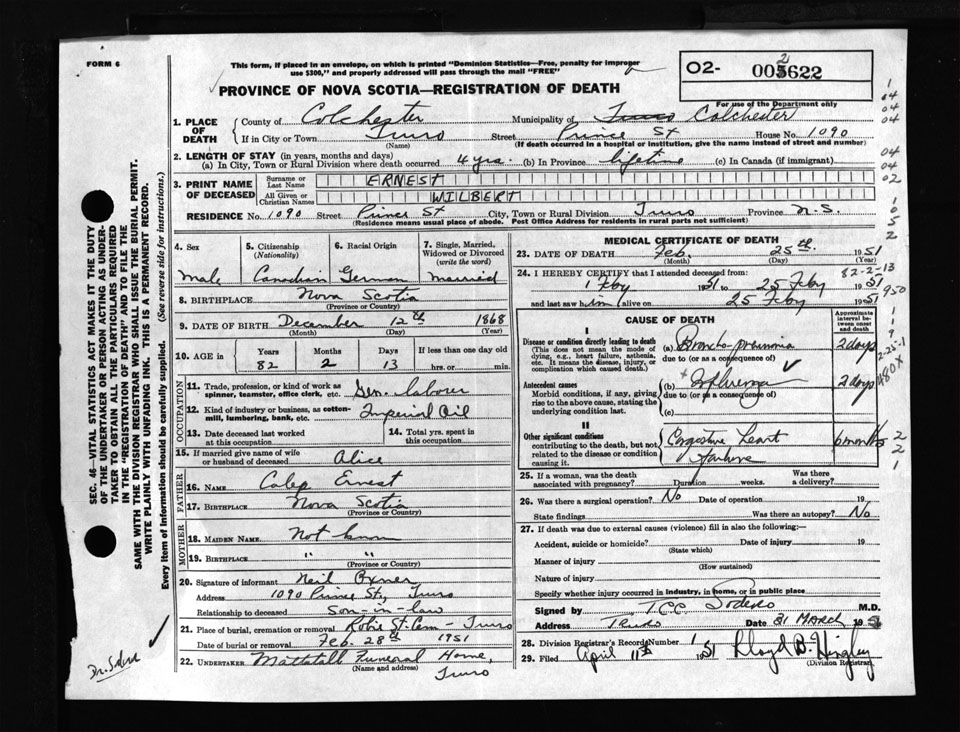 FORM 6
This form, if placed in an envelope, on which is printed "Dominion Statistics—Free, penalty for improper
use $300," and properly addressed will pass through the mail "FREE"
O2- 003622
2
For use of the Department only
PROVINCE OF NOVA SCOTIA—REGISTRATION OF DEATH
1. PLACE OF DEATH
County of Colchester Municipality of Truro Colchester
If in City or Town Truro Street Prince St House No. 1090
(Name) (If death occurred in a hospital or institution, give the name instead of street and number)
2. LENGTH OF STAY (in years, months and days)
(a) In City, Town or Rural Division where death occurred 4 yrs. (b) In Province lifetime (c) In Canada (if immigrant)
3. PRINT NAME OF DECEASED
Surname or Last Name ERNEST
All Given or Christian Names WILBERT
RESIDENCE No. 1090 Street Prince St City, Town or Rural Division Truro Province N.S.
(Residence means usual place of abode. Post Office Address for residents in rural parts not sufficient)
4. Sex
male
5. Citizenship (Nationality)
Canadian
6. Racial Origin
German
7. Single, Married, Widowed or Divorced (write the word)
married
8. BIRTHPLACE Nova Scotia
(Province or Country)
9. DATE OF BIRTH December 12th 1868
(Month) (Day) (Year)
10. AGE in Years Months Days If less than one day old
82 2 13 hrs. or min.
OCCUPATION
11. Trade, profession, or kind of work as spinner, teamster, office clerk, etc. Gen. laborer
12. Kind of industry or business, as cotton-mill, lumbering, bank, etc. Imperial Oil
13. Date deceased last worked at this occupation
14. Total yrs. spent in this occupation
15. If married give name of wife or husband of deceased Alice
FATHER
16. NAME Calep Ernest
17. BIRTHPLACE Nova Scotia
(Province or Country)
MOTHER
18. MAIDEN NAME Not known
19. BIRTHPLACE " "
(Province or Country)
20. Signature of informant Neil Oxner
Address 1090 Prince St, Truro
Relationship to deceased Son-in-law
21. Place of burial, cremation or removal Robie St. Cem - Truro
Date of burial or removal Feb. 28th 1951
22. UNDERTAKER Mattatall Funeral Home,
(Name and address)
Truro
MEDICAL CERTIFICATE OF DEATH
23. DATE OF DEATH Feb. 25th 1951
(Month) (Day) (Year)
24. I HEREBY CERTIFY that I attended deceased from:
1 Feby 1951 to 25 Feby 1951
and last saw him alive on 25 Feby 1951
82-2-13
950
CAUSE OF DEATH
Approximate interval between onset and death
I
Disease or condition directly leading to death
(This does not mean the mode of dying, e.g., heart failure, asthenia, etc. It means the disease, injury, or complication which caused death.)
(a) Broncho-pneumonia 2 days
due to (or as a consequence of)
Antecedent causes
Morbid conditions, if any, giving rise to the above cause, stating the underlying condition last.
(b) Influenza 2 days
due to (or as a consequence of)
(c)
II
Other significant conditions
contributing to the death, but not related to the disease or condition causing it.
Congestive Heart
Failure
6 months
2-25-1
480X
25. If a woman, was the death associated with pregnancy? Duration weeks. Was there a delivery?
26. Was there a surgical operation? No Date of operation 19
State findings Was there an autopsy? No
27. If death was due to external causes (violence) fill in also the following:—
Accident, suicide or homicide? Date of injury 19
(State which)
Manner of injury
(How sustained)
Nature of injury
Specify whether injury occurred in industry, in home, or in public place
Signed by T.C.C. Sodero M.D.
Address TRURO Date 31 March 1951
28. Division Registrar's Records Number 1
29. Filed April 11th 1951 Lloyd B. Hingley
(Division Registrar)
SEC. 46—VITAL STATISTICS ACT MAKES IT THE DUTY
OF THE UNDERTAKER OR PERSON ACTING AS UNDER-
TAKER TO OBTAIN ALL THE PARTICULARS REQUIRED
IN THE "REGISTRATION OF DEATH" AND TO FILE THE
SAME WITH THE DIVISION REGISTRAR WHO SHALL ISSUE THE BURIAL PERMIT.
WRITE PLAINLY WITH UNFADING INK. THIS IS A PERMANENT RECORD.
Every item of information should be carefully supplied. (See reverse side for instructions.)
1
04
04
04
04
04
02
1
0
5
2
2
2
1